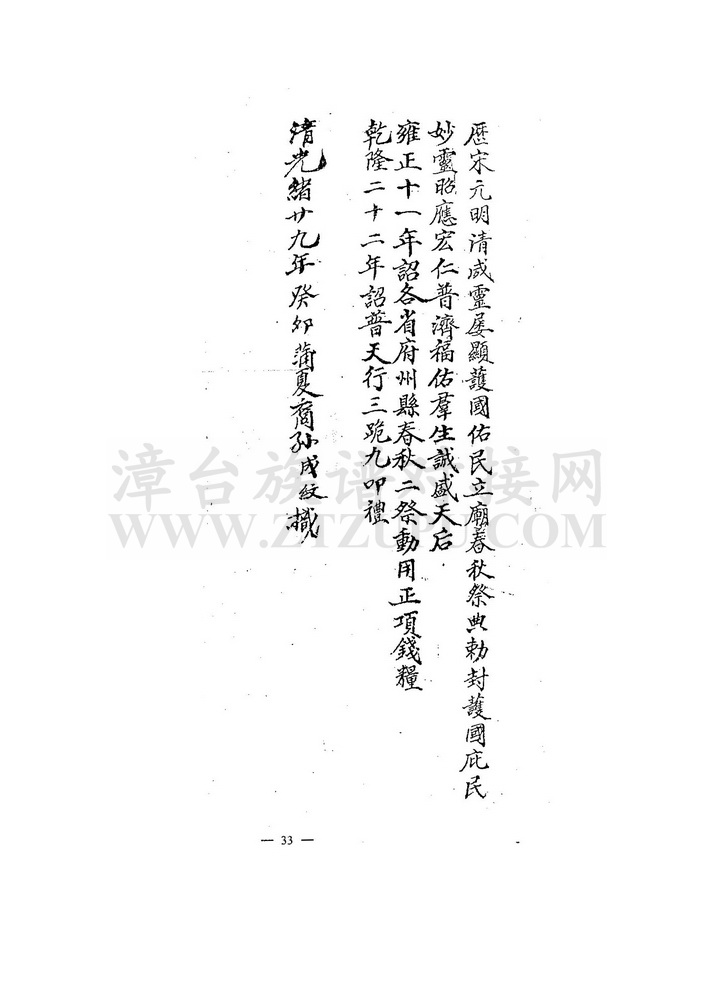 歷宋元明清咸靈屡顯護國佑民立廟春秋祭典勅封護國庇民
妙靈昭應宏仁普濟福佑羣生誠感天后
雍正十一年詔各省府州縣春秋二祭動用正項錢糧
乾隆二十二年詔普天行三跪九叩禮
清光緒廿九年癸卯蒲夏裔孙成纹撒
漳台族谱对接网
WWW.ZTZUPU.COM
— 33 —